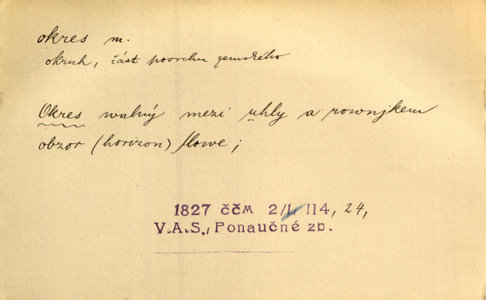 okres m.
okruh, část povrchu zemského
Okres walný mezi uhly a rownjkem
obzor (horizon) slowe;
1827 ČČM 2/I, 114, 24,
V.A.S., Ponaučné zb.